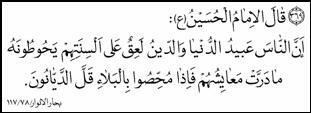 (٣٦٩) قَالَ الْاِمَامُ الْحُسَيْنُ (ع):
اِنَّ النَّاسَ عَبِيدُ الدُّنْيَا وَالدِّينُ لَعِقٌ عَلَى اَلْسِنَتِهِمْ يَحُوطُونَهُ
مَا دَرَّتْ مَعَايِشُهُمْ فَاِذَا مُحِّصُوا بِالْبَلَاءِ قَلَّ الدَّيَّانُونَ.
بحار الانوار: ١١٧/٧٨